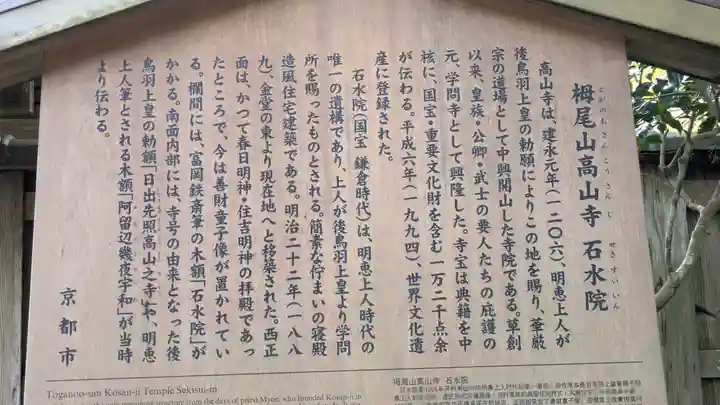 栂尾山高山寺 石水院
とがのおさんこうさんじ せきすいいん
高山寺は、建永元年(一二〇六)、明恵上人が
後鳥羽上皇の勅願によりこの地を賜り、華厳
宗の道場として中興開山した寺院である。草創
以来、皇族・公卿・武士の要人たちの庇護の
元、学問寺として興隆した。寺宝は典籍を中
核に、国宝・重要文化財を含む一万二千点余
が伝わる。平成六年(一九九四)、世界文化遺
産に登録された。
石水院(国宝 鎌倉時代)は、明恵上人時代の
唯一の遺構であり、上人が後鳥羽上皇より学問
所を賜ったものとされる。簡素な佇まいの寝殿
造風住宅建築である。明治二十二年(一八八
九)、金堂の東より現在地へと移築された。西正
面は、かつて春日明神・住吉明神の拝殿であっ
たところで、今は善財童子像が置かれてい
る。欄間には、富岡鉄斎筆の木額「石水院」が
かかる。南面内部には、寺号の由来となった後
鳥羽上皇の勅額「日出先照高山之寺」や、明恵
上人筆とされる木額「阿留辺幾夜宇和」が当時
より伝わる。
京都市
Toganoo-san Kosan-ji Temple Sekisui-in
栂尾山高山寺 石水院